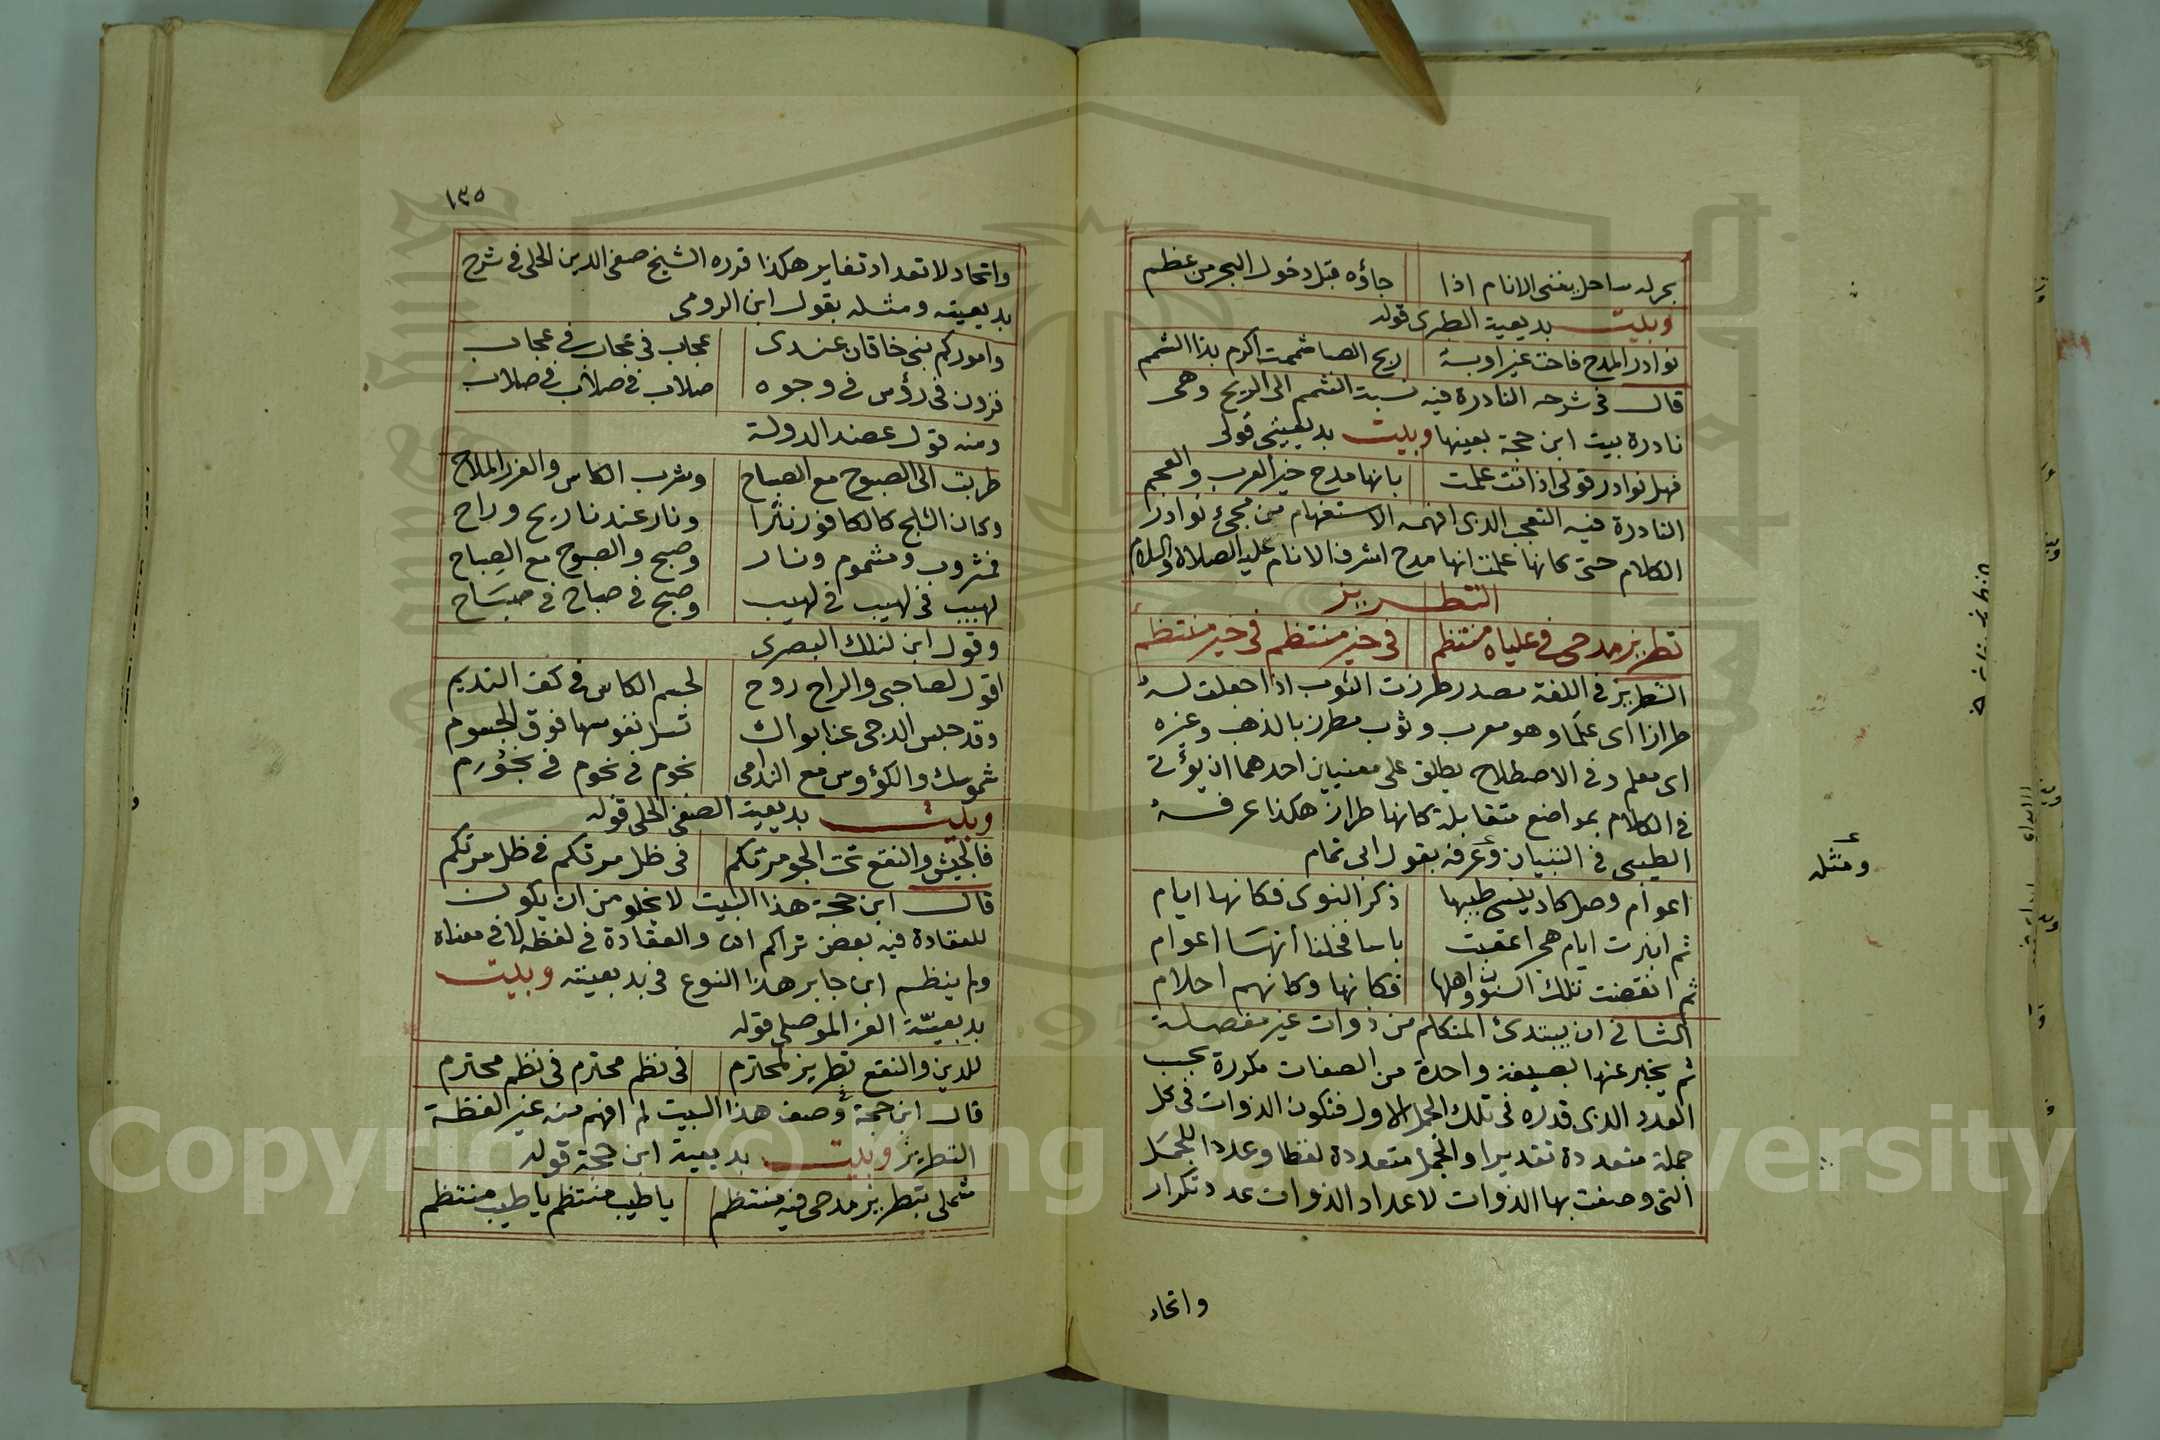 بحر له ساحل يغنى الانام اذا جاؤه قبل دخول البحر من عظم
وبليت بديعية الطبرى قوله
نوادر المدح فاحت غير اوبة ريح الصبا شممت اكرم بذا الشمم
قال فى شرحه النادرة فيه نسبة الشمم الى الريح وهى
نادرة بيت ابن حجة بعينها وبليت بديعيتى قولى
فهل نوادر قولى اذ اتت علمت بانها مدح خير العرب والعجم
النادرة فيه التعجب الذى افهمه الاستفهام من مجئ نوادر
الكلام حتى كانها علمت انها مدح اشرف الانام عليه الصلاة والسلام
التطريز
تطريز مدحى فى علياه منتظم فى خير منتظم فى خير منتظم
التطريز فى اللغة مصدر طرزت الثوب اذا جعلت له
طرازا اى علما وهو معرب وثوب مطرز بالذهب وغيره
اى معلم وفى الاصطلاح يطلق على معنيين احدهما ان يؤتى
فى الكلام بمواضع متقابلة كانها طراز هكذا عرفه
الطيبى فى التبيان وعرفه بقول ابى تمام
ومثله
اعوام وصل كاد ينسى طيبها ذكر النوى فكانها ايام
ثم انبرت ايام هجر اعقبت باسا فخلنا انها اعوام
ثم انقضت تلك السنون واهلها فكانها وكانهم احلام
الثانى ان يبتدئ المتكلم من ذوات غير مفصلة
ثم يخبر عنها بصيغة واحدة من الصفات مكررة بحسب
العدد الذى قدره فى تلك الجمل الاول فتكون الذوات فى كل
جملة متعددة تقديرا والجمل متعددة لفظا وعدد الجمل
التى وصفت بها الذوات لا عداد الذوات عدد تكرار
واتحاد
١٣٥
واتحاد لا تعداد تغاير هكذا قرره الشيخ صفى الدين الحلى فى شرح
بديعيته ومثله بقول ابن الرومى
واموركم بنى خاقان عندى عجاب فى عجاب فى عجاب
قرون فى رؤس فى وجوه صلاب فى صلاب فى صلاب
ومنه قول عضد الدولة
طربت الى الصبوح مع الصباح وشرب الكاس والغرر الملاح
وكان الثلج كالكافور نثرا ونار عند نا ريح وراح
فمشروب ومشموم ونار وصبح والصبوح مع الصباح
لهيب فى لهيب فى لهيب وصبح فى صباح فى صباح
وقول ابن لنلك البصرى
اقول لصاحبى والراح روح لجسم الكاس فى كف النديم
وقد حبس الدجى عنا بواك تسل نفوسها فوق الجسوم
شموسك والكؤوس مع الندامى نجوم فى نجوم فى نجوم
وبليت بديعية الصفى الحلى قوله
فالجيش والنقع تحت الجو مرتكم فى ظل مرتكم فى ظل مرتكم
قال ابن حجة هذا البيت لا يخلو من ان يكون
للعقادة فيه بعض تراكم اى والعقادة فى لفظه لا فى معناه
ولم ينظم ابن جابر هذا النوع فى بديعيته وبليت
بديعيّة العز الموصلى قوله
للدين والنقع تطريز لمحترم فى نظم محترم فى نظم محترم
قال ابن حجة وصف هذا البيت لم افهم منه غير لفظة
التطريز وبليت بديعية ابن حجة قوله
شملى بتطريز مدحى فيه منتظم يا طيب منتظم يا طيب منتظم
Copyright © King Saud University